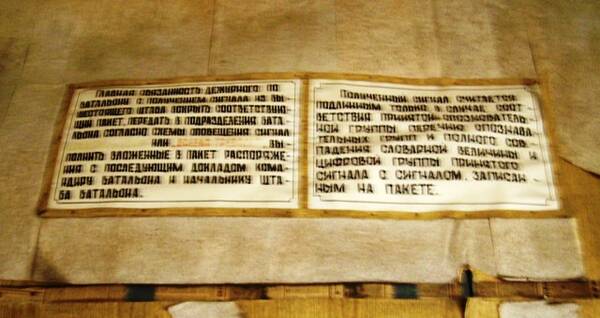 Главная обязанность дежурного по
батальону с получением сигнала из вы-
шестоящего штаба вскрыть соответствую-
щий пакет, передать в подразделения бата-
льона согласно схемы оповещения сигнал
или вы-
полнить вложенные в пакет распоряже-
ния с последующим докладом кома-
ндиру батальона и начальнику шта-
ба батальона.
Полученный сигнал считается
подлинным только в случае соот-
ветствия принятой опознаватель-
ной группы перечню опознава-
тельных групп и полного сов-
падения словарной величины и
цифровой группы принятого
сигнала с сигналом, записан-
ным на пакете.